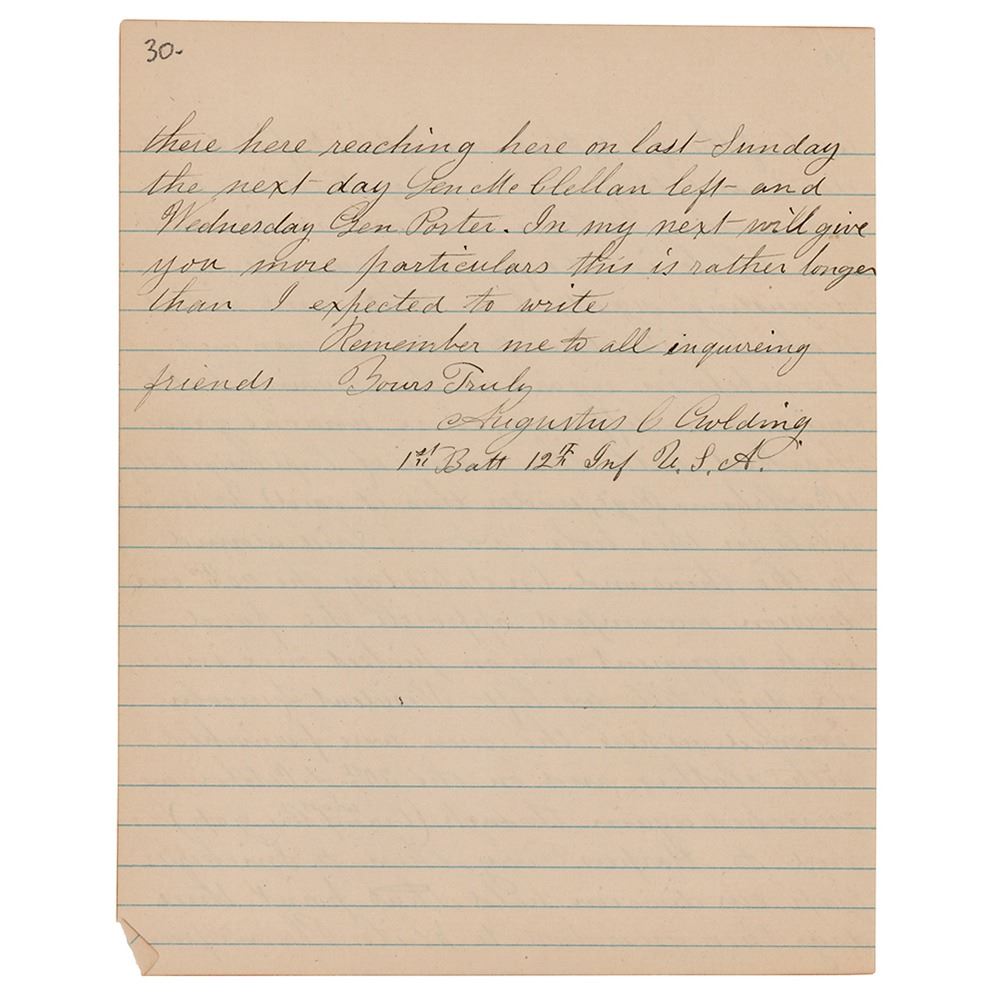 30-
there here reaching here on last Sunday
the next day Gen Mc Clellan left and
Wednesday Gen Porter. In my next will give
you more particulars this is rather longer
than I expected to write
Remember me to all inquireing
friends Yours Truly
Augustus C Golding
1st Batt 12th Inf U. S. A.